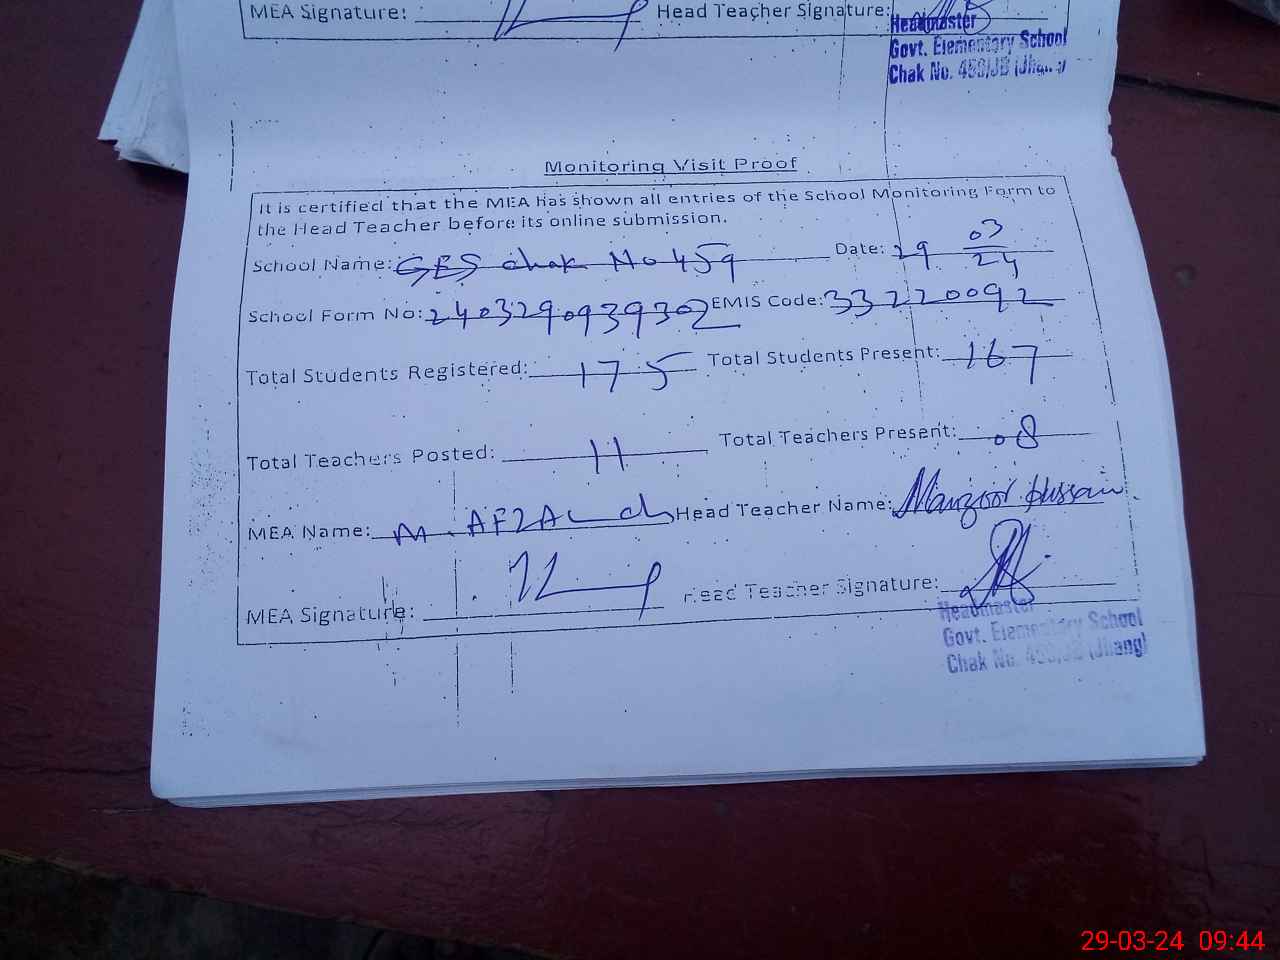 MEA Signature: Head Teacher Signature:
Headmaster
Govt. Elementary School
Chak No. 459/JB (Jhang)
Monitoring Visit Proof
It is certified that the MEA has shown all entries of the School Monitoring Form to
the Head Teacher before its online submission.
School Name: GES chak No 459 Date: 29 03/24
School Form No: 2403290939302 EMIS Code: 33220092
Total Students Registered: 175 Total Students Present: 167
Total Teachers Posted: 11 Total Teachers Present: 08
MEA Name: M. AFZAL ch Head Teacher Name: Manzoor Hussain
MEA Signature: Head Teacher Signature:
Headmaster
Govt. Elementary School
Chak No. 459/JB (Jhang)
29-03-24 09:44